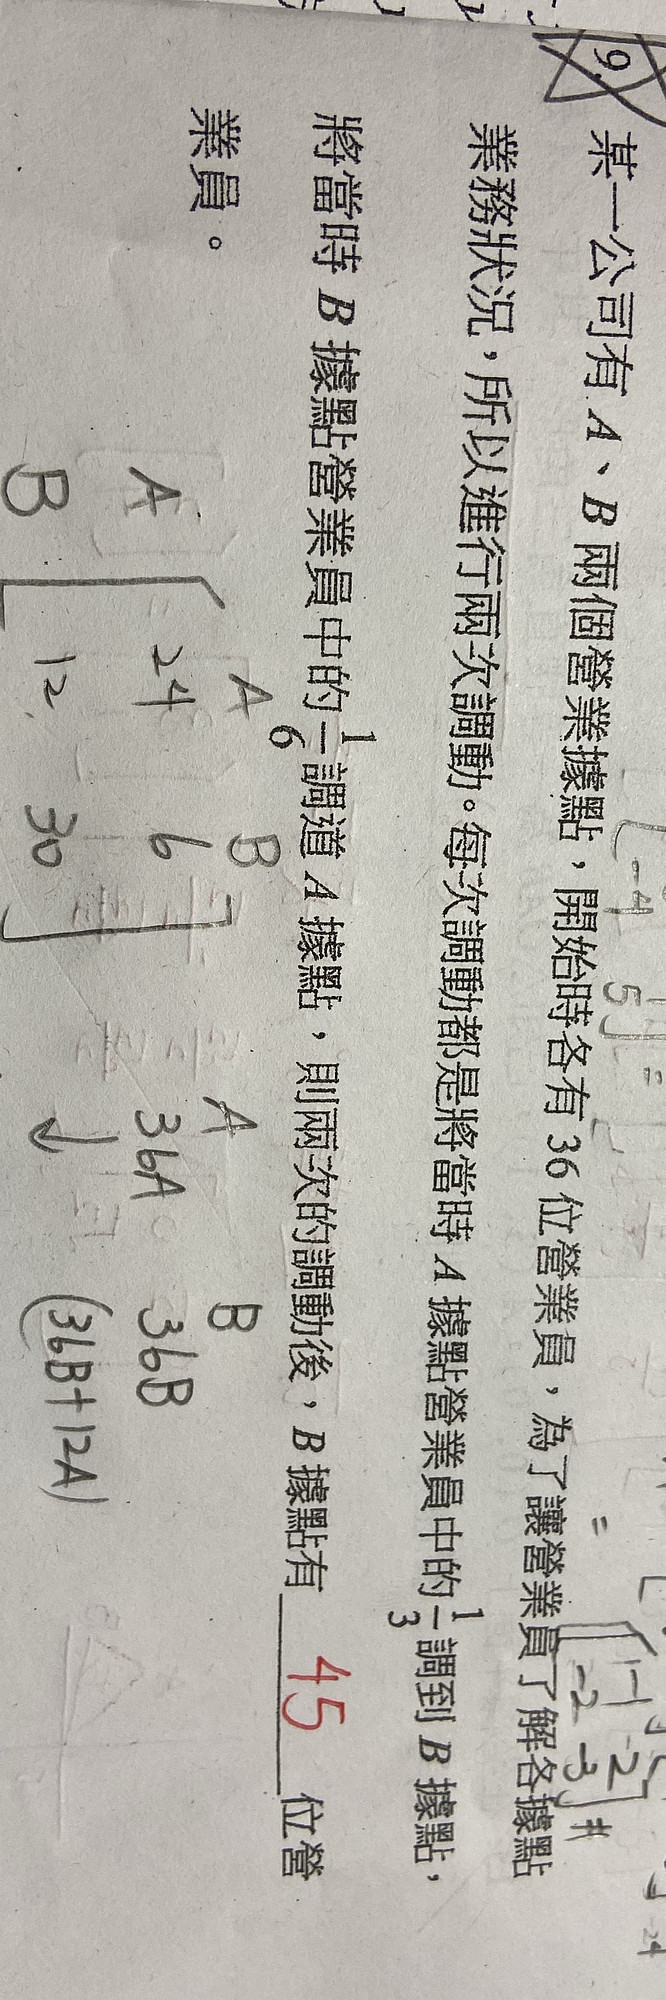 9.
某一公司有 A、B 兩個營業據點，開始時各有 36 位營業員，為了讓營業員了解各據點
業務狀況，所以進行兩次調動。每次調動都是將當時 A 據點營業員中的 1/3 調到 B 據點，
將當時 B 據點營業員中的 1/6 調道 A 據點，則兩次的調動後，B 據點有 45 位營
業員。
A B
A 24 6
B 12. 30
A B
36A 36B
↓ (36B+12A)
-4 5 =
=
-1 -2
-2 -3 #